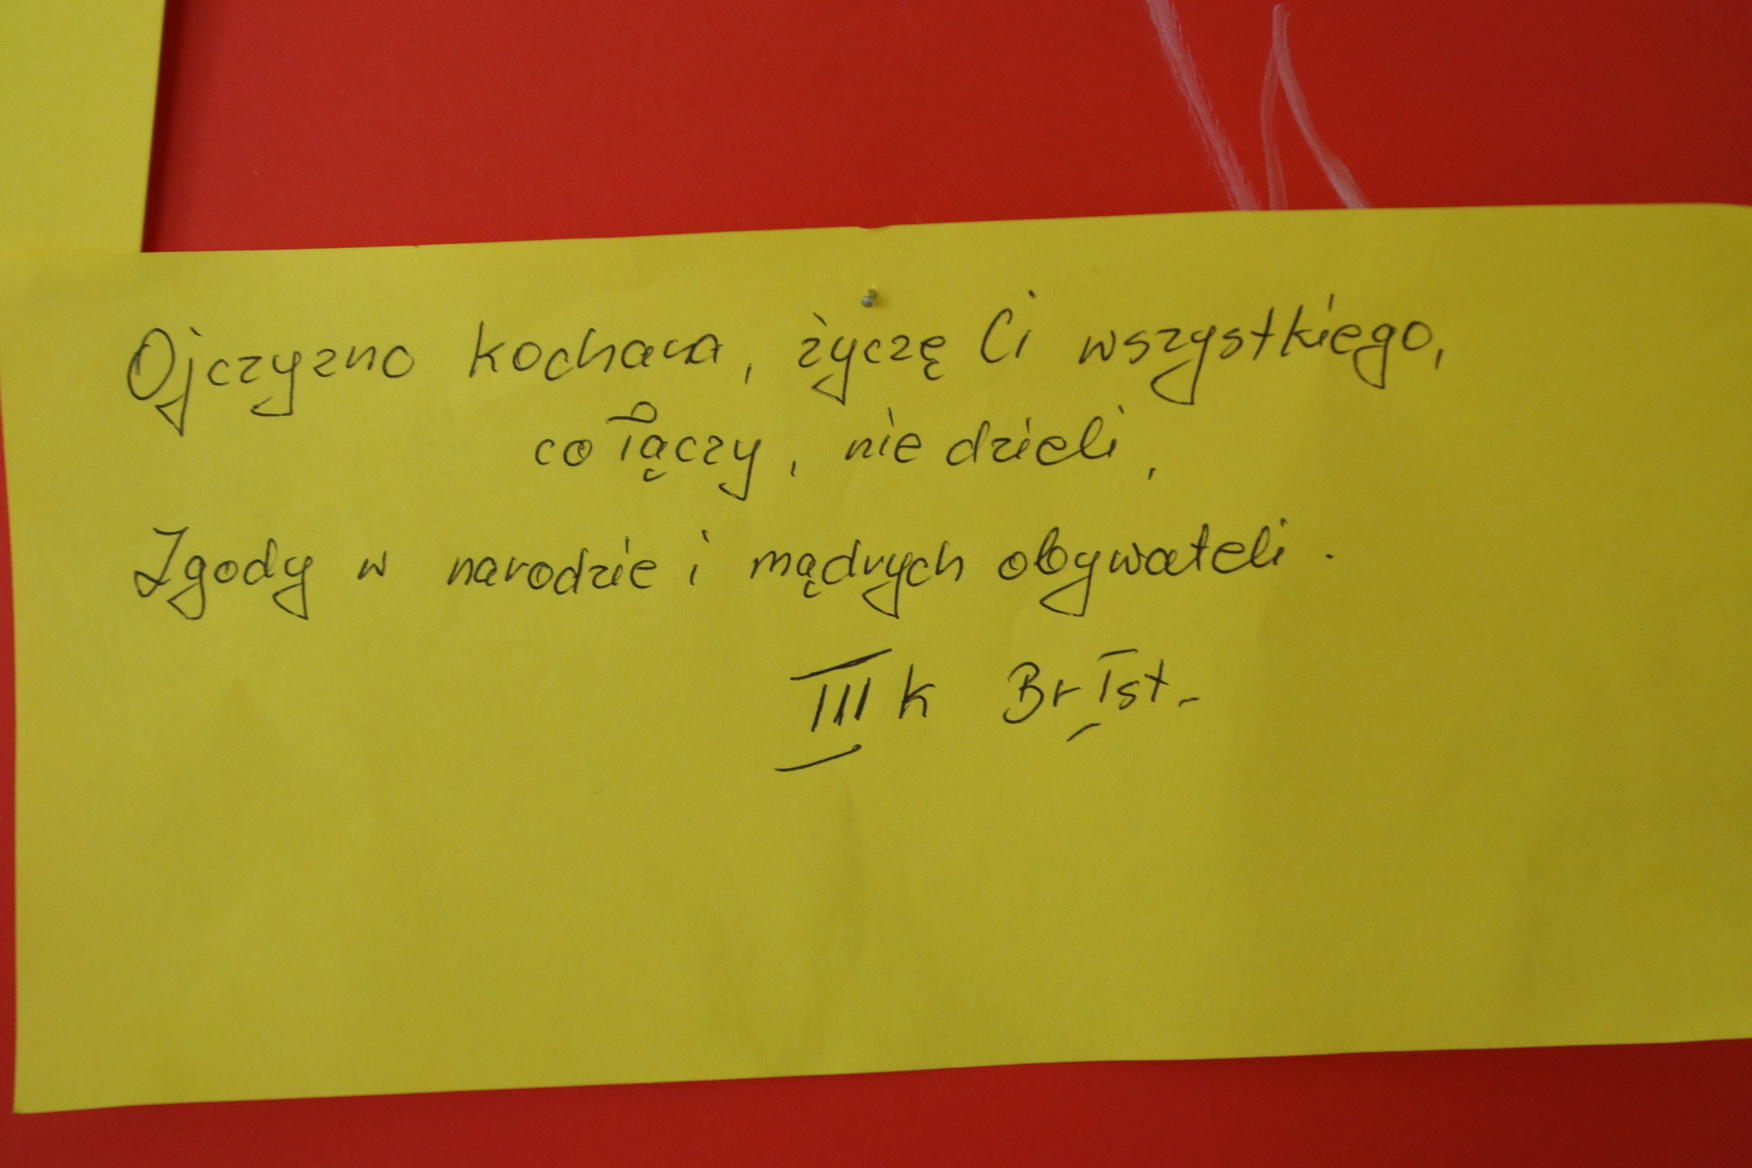 Ojczyzno kochana, życzę Ci wszystkiego,
co łączy, nie dzieli,
Zgody w narodzie i mądrych obywateli.
III k Br I st.